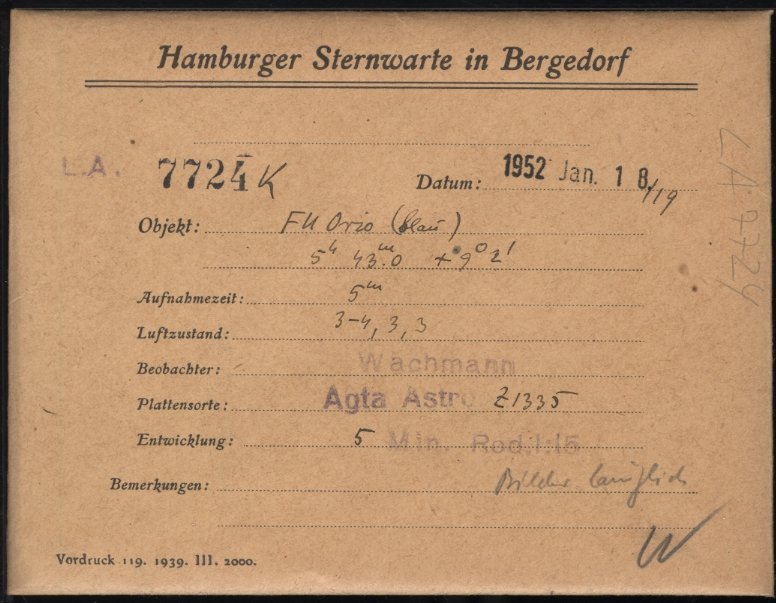 Hamburger Sternwarte in Bergedorf
L.A. 7724 K Datum: 1952 Jan. 18/19
Objekt: FU Orio (blau)
5h 43m.0 +9° 2'
Aufnahmezeit: 5m
Luftzustand: 3-4, 3, 3
Beobachter: Wachmann
Plattensorte: Agfa Astro Z1335
Entwicklung: 5 Min. Rod. 1:15
Bemerkungen: Bilder länglich
W
Vordruck 119. 1939. III. 2000.
LA 7724